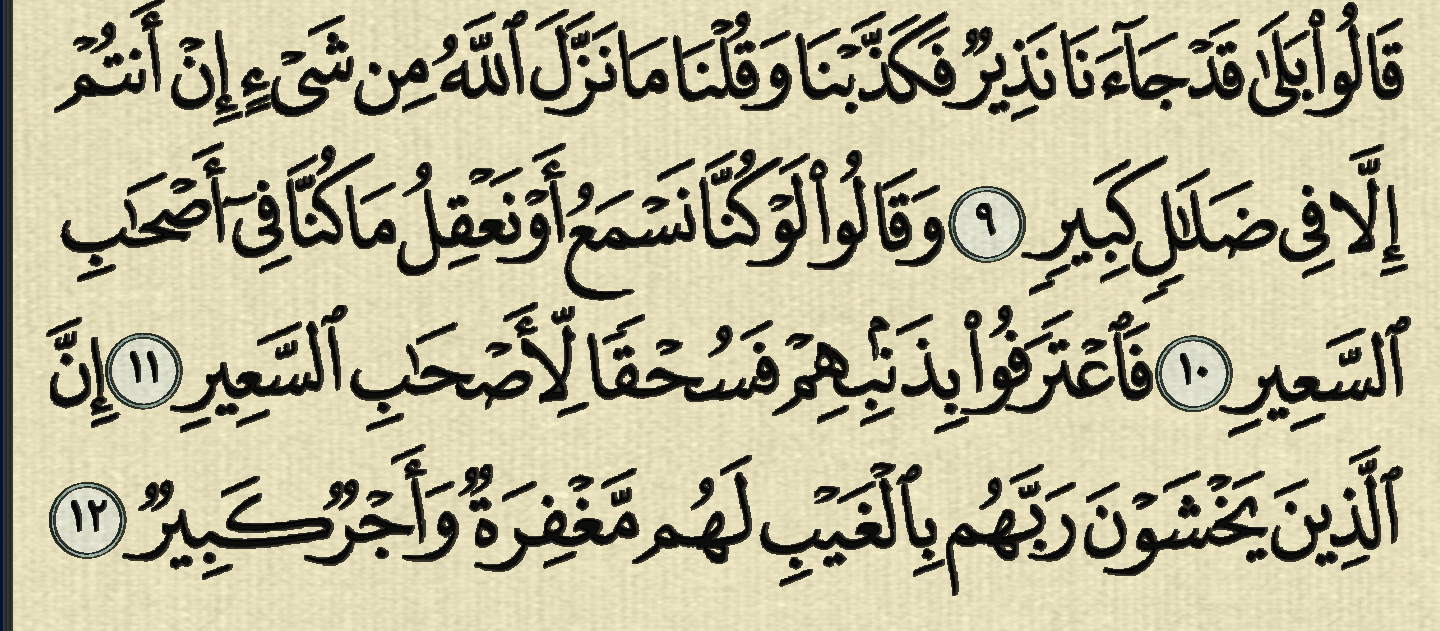 قَالُوا۟ بَلَىٰ قَدْ جَآءَنَا نَذِيرٌ فَكَذَّبْنَا وَقُلْنَا مَا نَزَّلَ ٱللَّهُ مِن شَىْءٍ إِنْ أَنتُمْ
إِلَّا فِى ضَلَـٰلٍ كَبِيرٍ ٩ وَقَالُوا۟ لَوْ كُنَّا نَسْمَعُ أَوْ نَعْقِلُ مَا كُنَّا فِىٓ أَصْحَـٰبِ
ٱلسَّعِيرِ ١٠ فَٱعْتَرَفُوا۟ بِذَنۢبِهِمْ فَسُحْقًا لِّأَصْحَـٰبِ ٱلسَّعِيرِ ١١ إِنَّ
ٱلَّذِينَ يَخْشَوْنَ رَبَّهُم بِٱلْغَيْبِ لَهُم مَّغْفِرَةٌ وَأَجْرٌ كَبِيرٌ ١٢